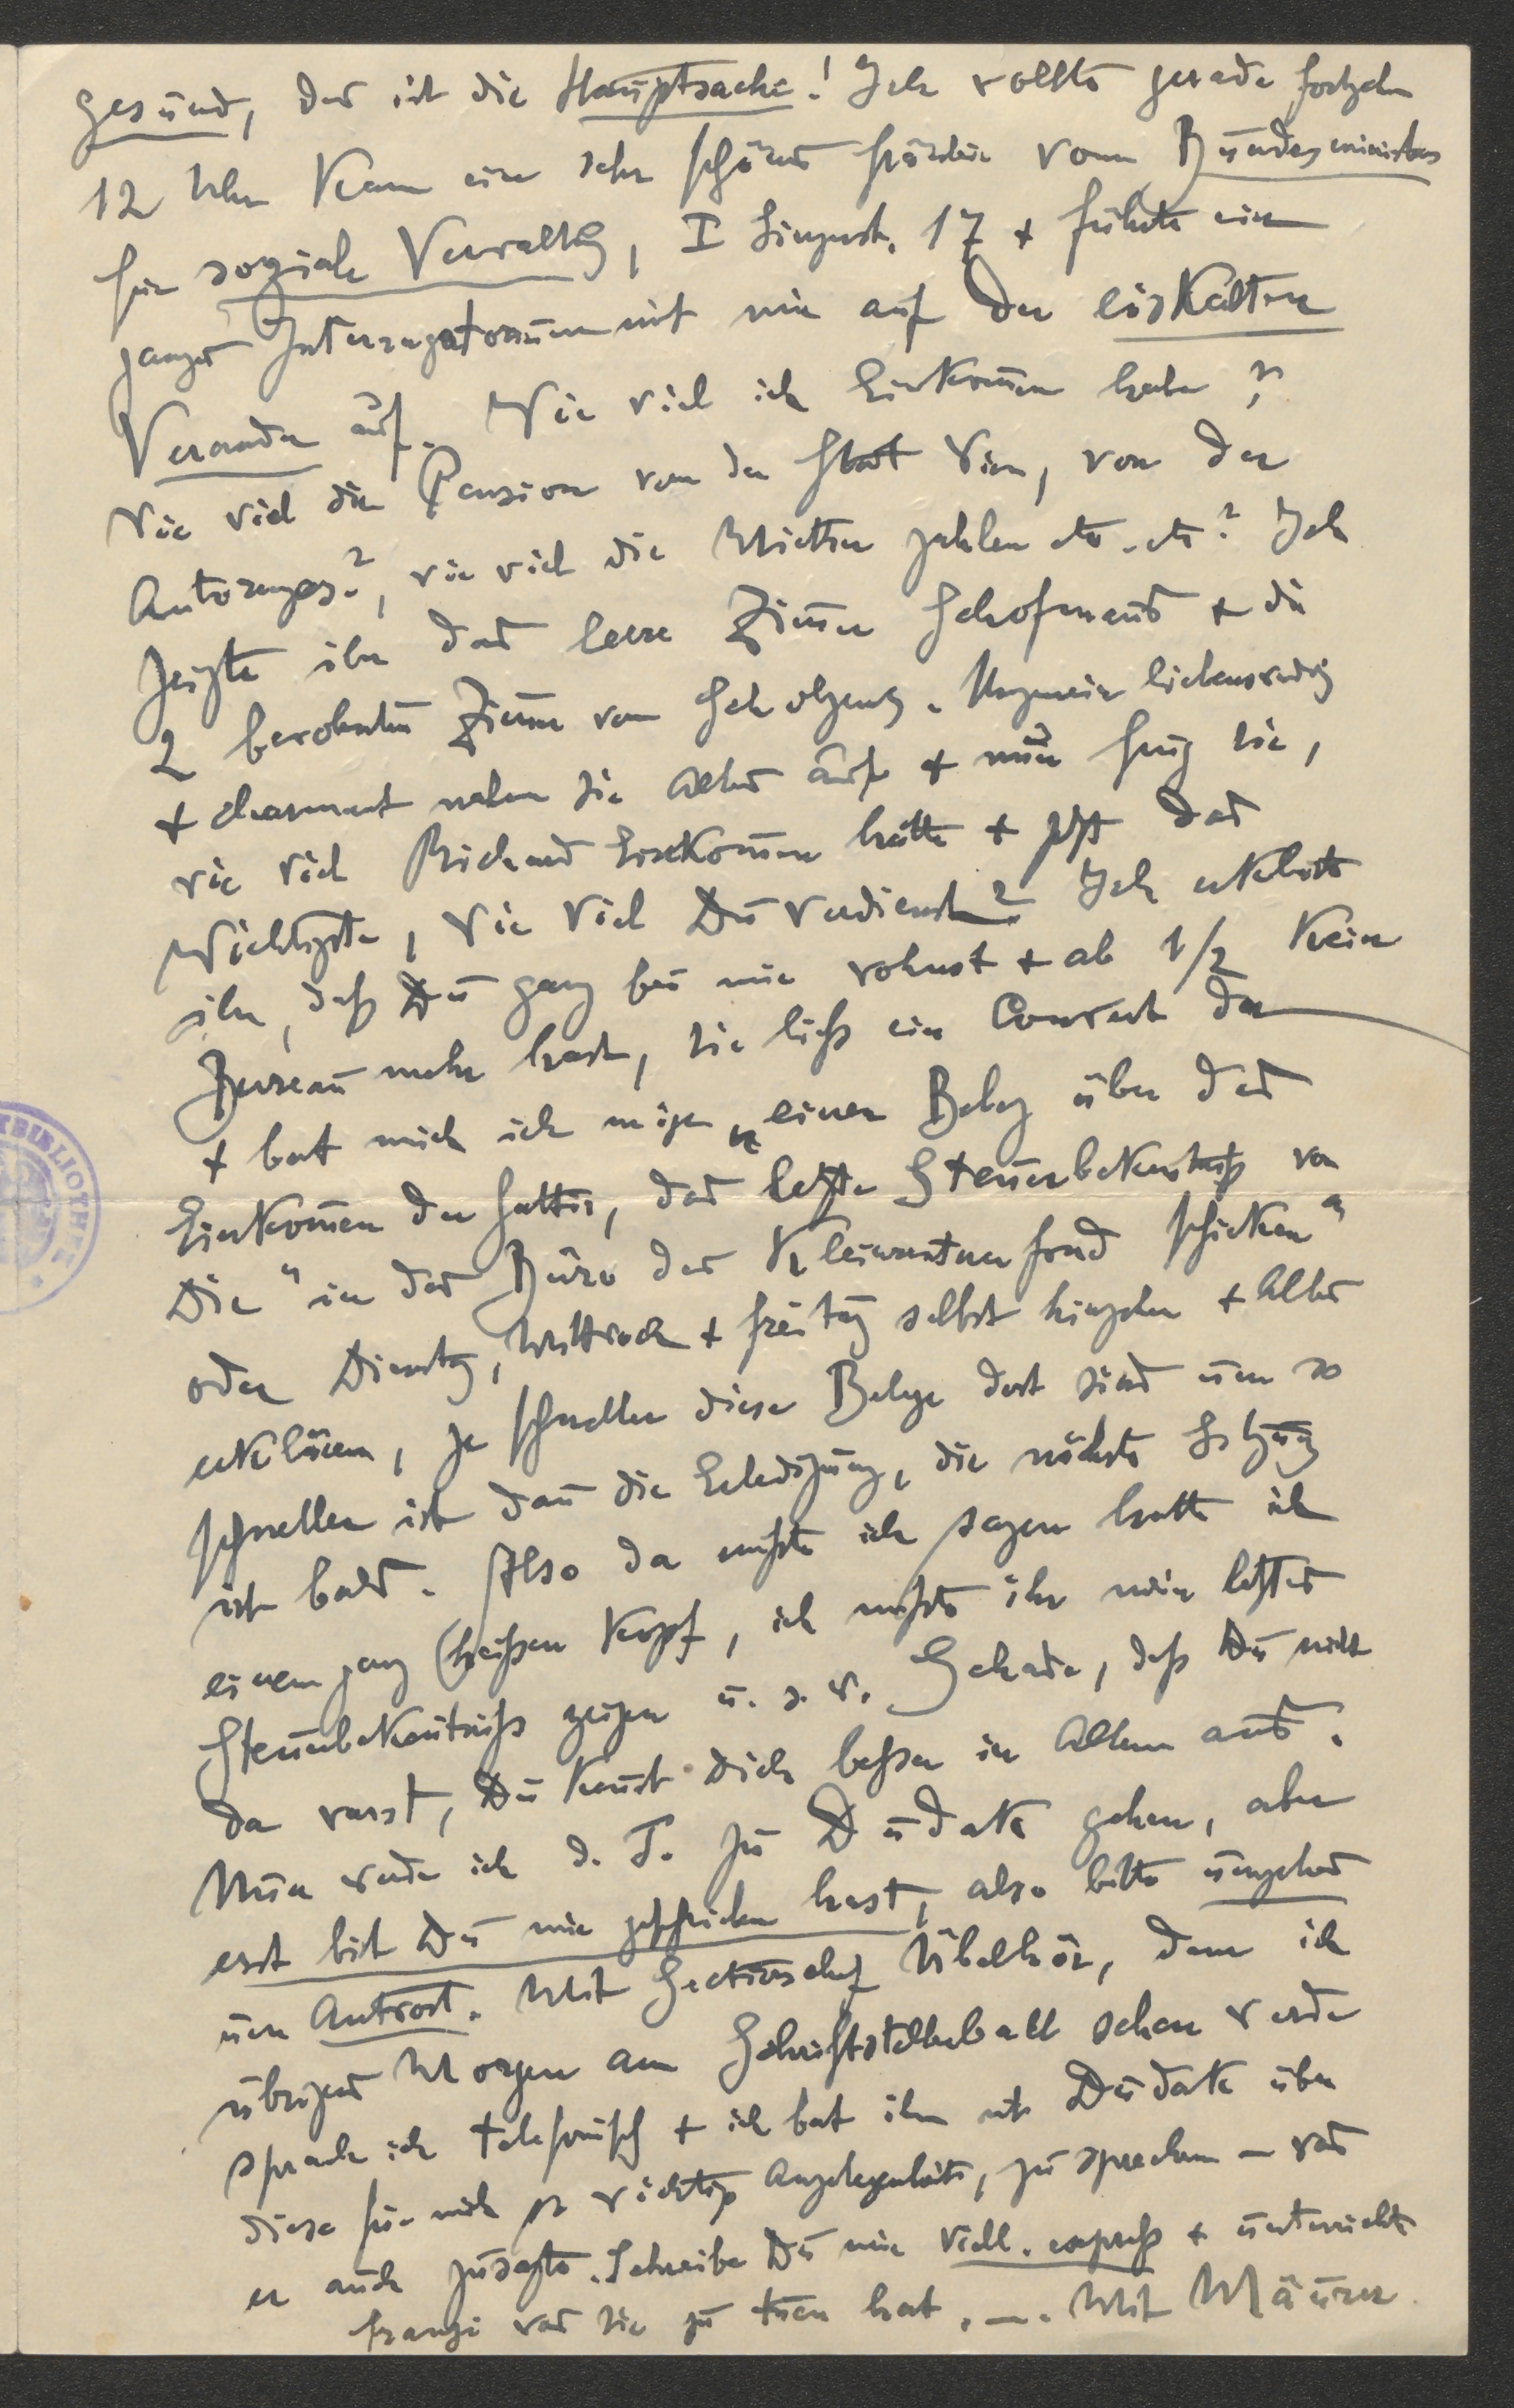 gesund, das ist die Hauptsache! Ich wollte gerade fortgehn
12 Uhr kam eine sehr schönes Fräulein vom Bundesminister
für soziale Verwaltg, I 17 + führte ein
ganzes Interrogatorium mit mir auf der eiskalten
Veranda auf. Wie viel ich Einkommen habe?
Wie viel die Pension von der Stadt Wien, von der
Autorenges.?, wie viel die Mieter zahlen etc. etc? Ich
zeigte ihr das leere Zimmer + die
2 bewohnten Zimmer von . Ungemein liebenswürdig
+ charmant nahm sie Alles auf + nun frug sie,
wie viel Richard Einkommen hätte + jetzt das
Wichtigste, wie viel Du verdienst? Ich erklärte
ihr, daß Du ganz bei mir wohnst + ab 1/2 kein
Bureau mehr hast, sie ließ ein Couvert da
+ bat mich ich möge „einen Beleg über das
Einkommen der Gattin, das letzte Steuerbekentniß von
Die" in das Büro des Kleinrentnerfond schicken"
oder Dienstg, Mittwoch + Freitag selbst hingehn + Alles
erklären, je schneller diese Belege dort sind um so
schneller ist dann die Erledigung, die nächste Sitzung
ist bald. Also da mußte ich sagen hatte ich
einen ganz heißen Kopf, ich mußte ihr mein letztes
Steuerbekentniß zeigen u. s. w. Schade, daß Du nicht
da warst, Du kenst Dich besser in Allem aus.
Nun werde ich d. T. zu Dudak gehen, aber
erst bis Du mir geschrieben hast, also bitte umgehend
um Antwort. Mit Sectionschef Übelhör, den ich
übrigens Morgen am Schriftstellerball sehen werde
sprach ich telefonisch + ich bat ihn mit Dudak über
diese für mich so wichtige Angelegenheit, zu sprechen – was
er auch zusagte. Schreibe Du mir vill. express + unterrichte
was sie zu tuen hat. –. Mit Maurer